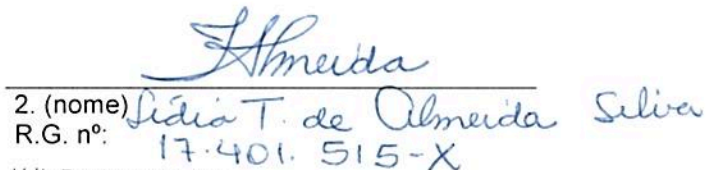 Almeida
2. (nome) Lídia T. de Almeida Silva
R.G. nº: 17.401.515-X